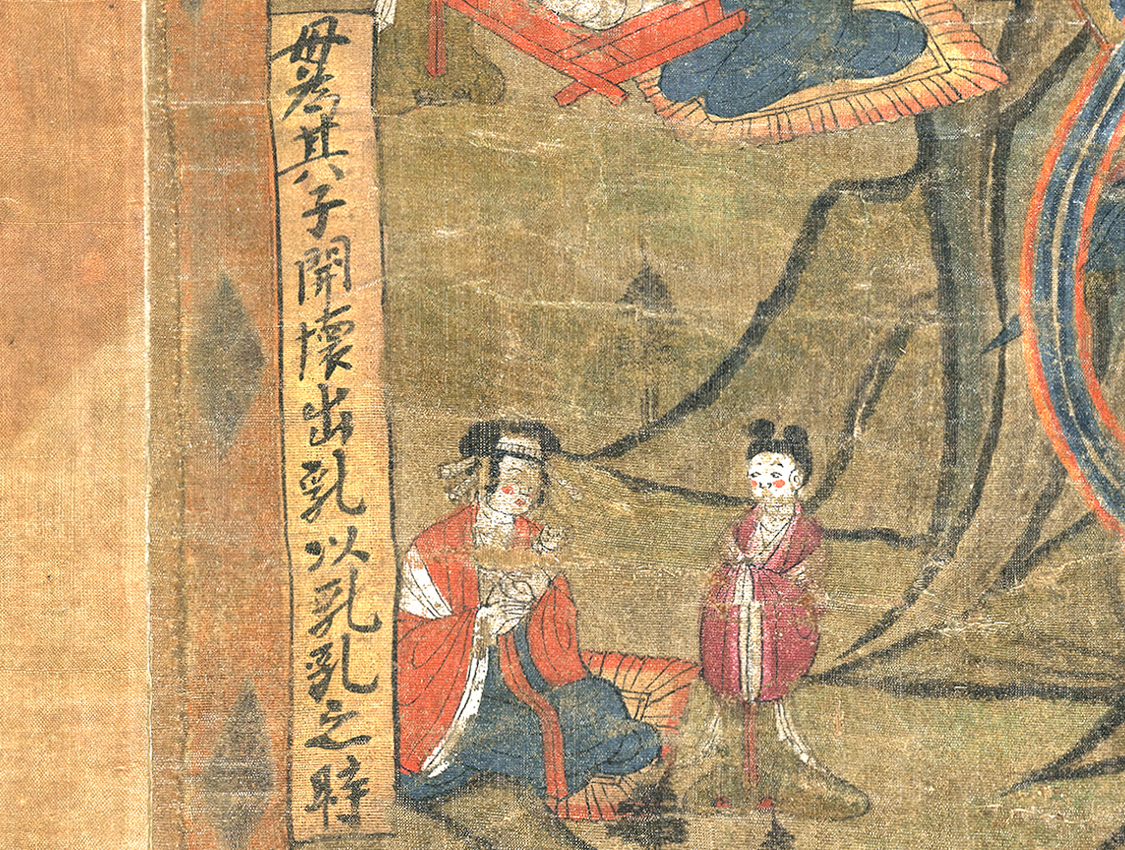 母為其子開壞出乳以乳乳之時